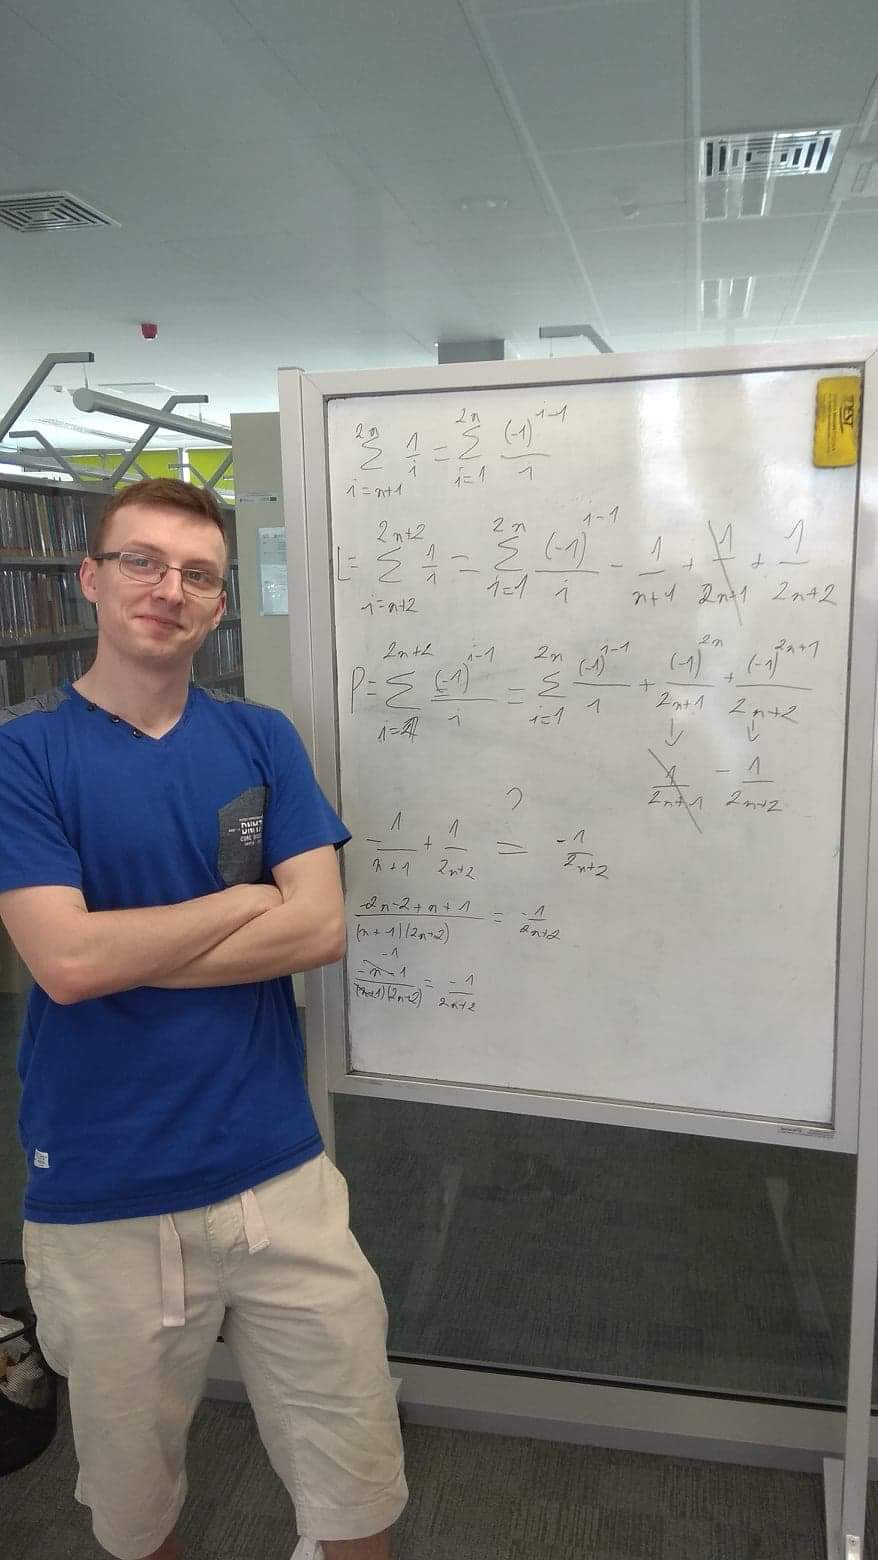 2n 2n (-1)^{i-1}
∑ 1/i = ∑ (-1)^{i-1}/1
i=n+1 i=1
L = ∑_{i=n+2}^{2n+2} 1/1 = ∑_{i=1}^{2n} (-1)^{i-1}/i - 1/(n+1) + 1/(2n+1) + 1/(2n+2)
P = ∑_{i=1}^{2n+2} (-1)^{i-1}/i = ∑_{i=1}^{2n} (-1)^{i-1}/1 + (-1)^{2n}/(2n+1) + (-1)^{2n+1}/(2n+2)
↓ ↓
1/(2n+1) - 1/(2n+2)
?
-1/(n+1) + 1/(2n+2) = -1/(2n+2)
(-2n-2+n+1)/((n+1)(2n+2)) = -1/(2n+2)
-1
(-n-1)/((n+1)(2n+2)) = -1/(2n+2)